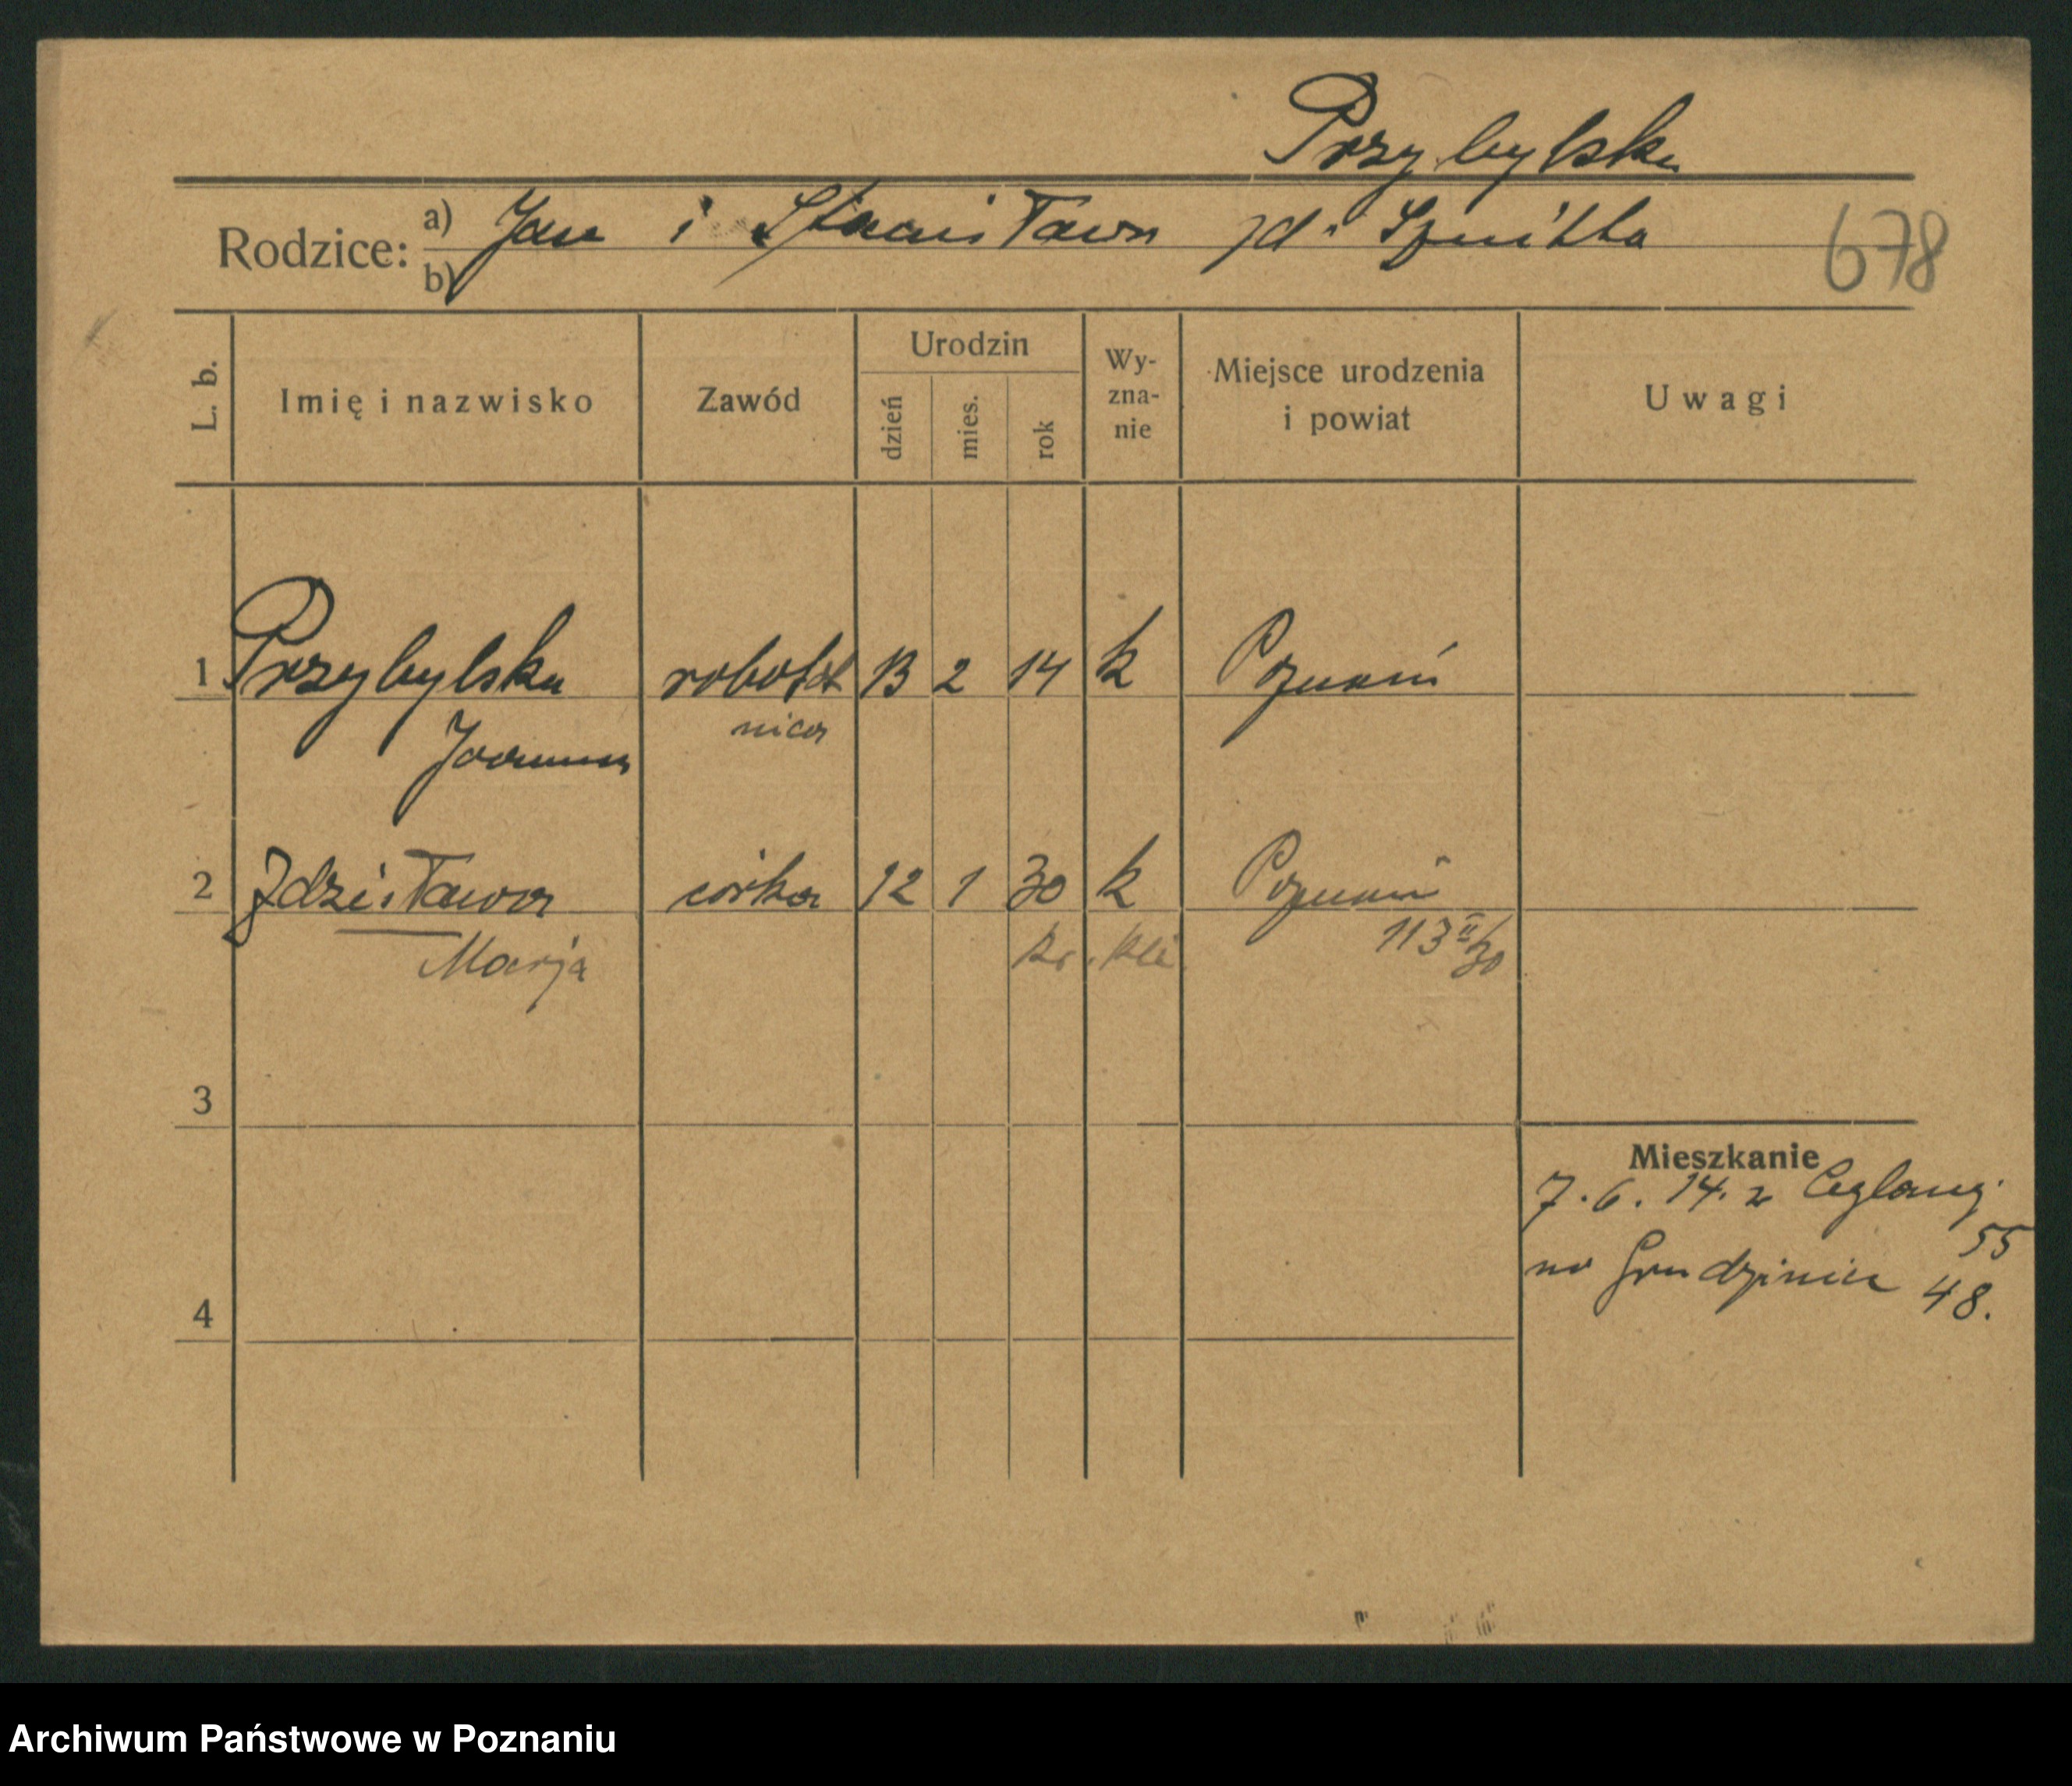 Przybylska
Rodzice: a) Jan i Stanisława zd.
b)
678
L. b. Imię i nazwisko Zawód Urodzin dzień mies. rok Wy-zna-nie Miejsce urodzenia i powiat Uwagi
1 Przybylska robot 13 2 14 k Poznań
nica
Joanna
2 Zdzisława córka 12 1 30 k Poznań
Marja 113 II/30
3
Mieszkanie
7. 6. 14. z
55
na Grudzieniec 48.
4
Archiwum Państwowe w Poznaniu